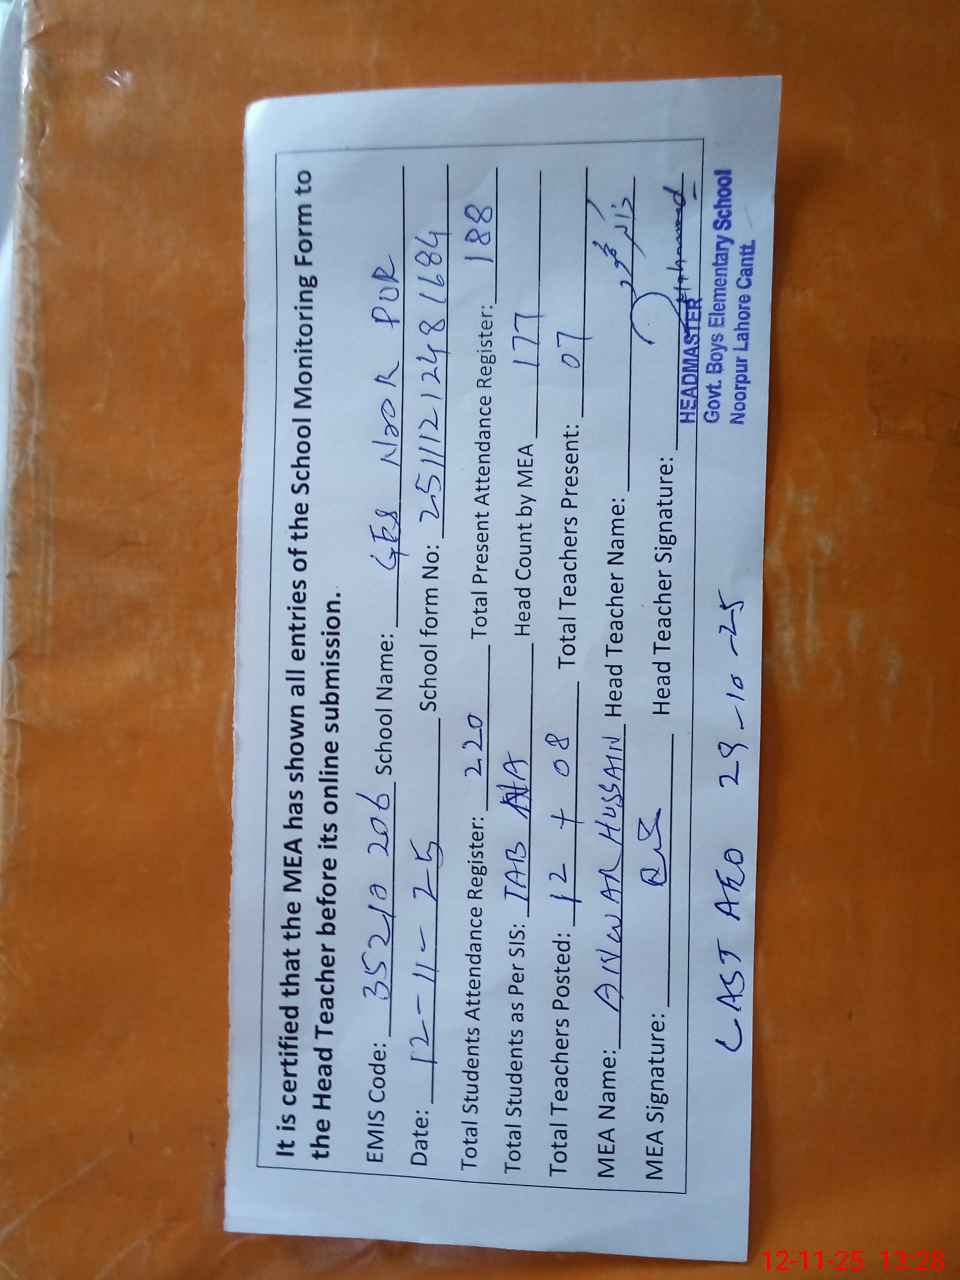 It is certified that the MEA has shown all entries of the School Monitoring Form to
the Head Teacher before its online submission.
EMIS Code: 35210 206 School Name: GES NOOR POR
Date: 12-11-25 School form No: 25111212481684
Total Students Attendance Register: 220 Total Present Attendance Register: 188
Total Students as Per SIS: TAB NA Head Count by MEA 177
Total Teachers Posted: 12 + 08 Total Teachers Present: 07
MEA Name: ANWAR HUSSAIN Head Teacher Name:
MEA Signature: Head Teacher Signature:
HEADMASTER
Govt. Boys Elementary School
Noorpur Lahore Cantt.
LAST AEO 29-10-25
12-11-25 13:28